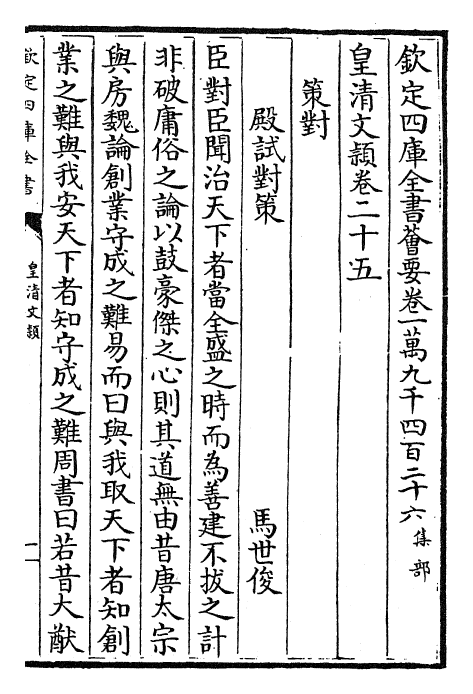 欽定四庫全書薈要卷一萬九千四百二十六 集部
皇清文穎卷二十五
策對
殿試對策 馬世俊
臣對臣聞治天下者當全盛之時而為善建不拔之計
非破庸俗之論以鼓豪傑之心則其道無由昔唐太宗
與房魏論創業守成之難易而曰與我取天下者知創
業之難與我安天下者知守成之難周書曰若昔大猷
欽定四庫全書
皇清文穎
一